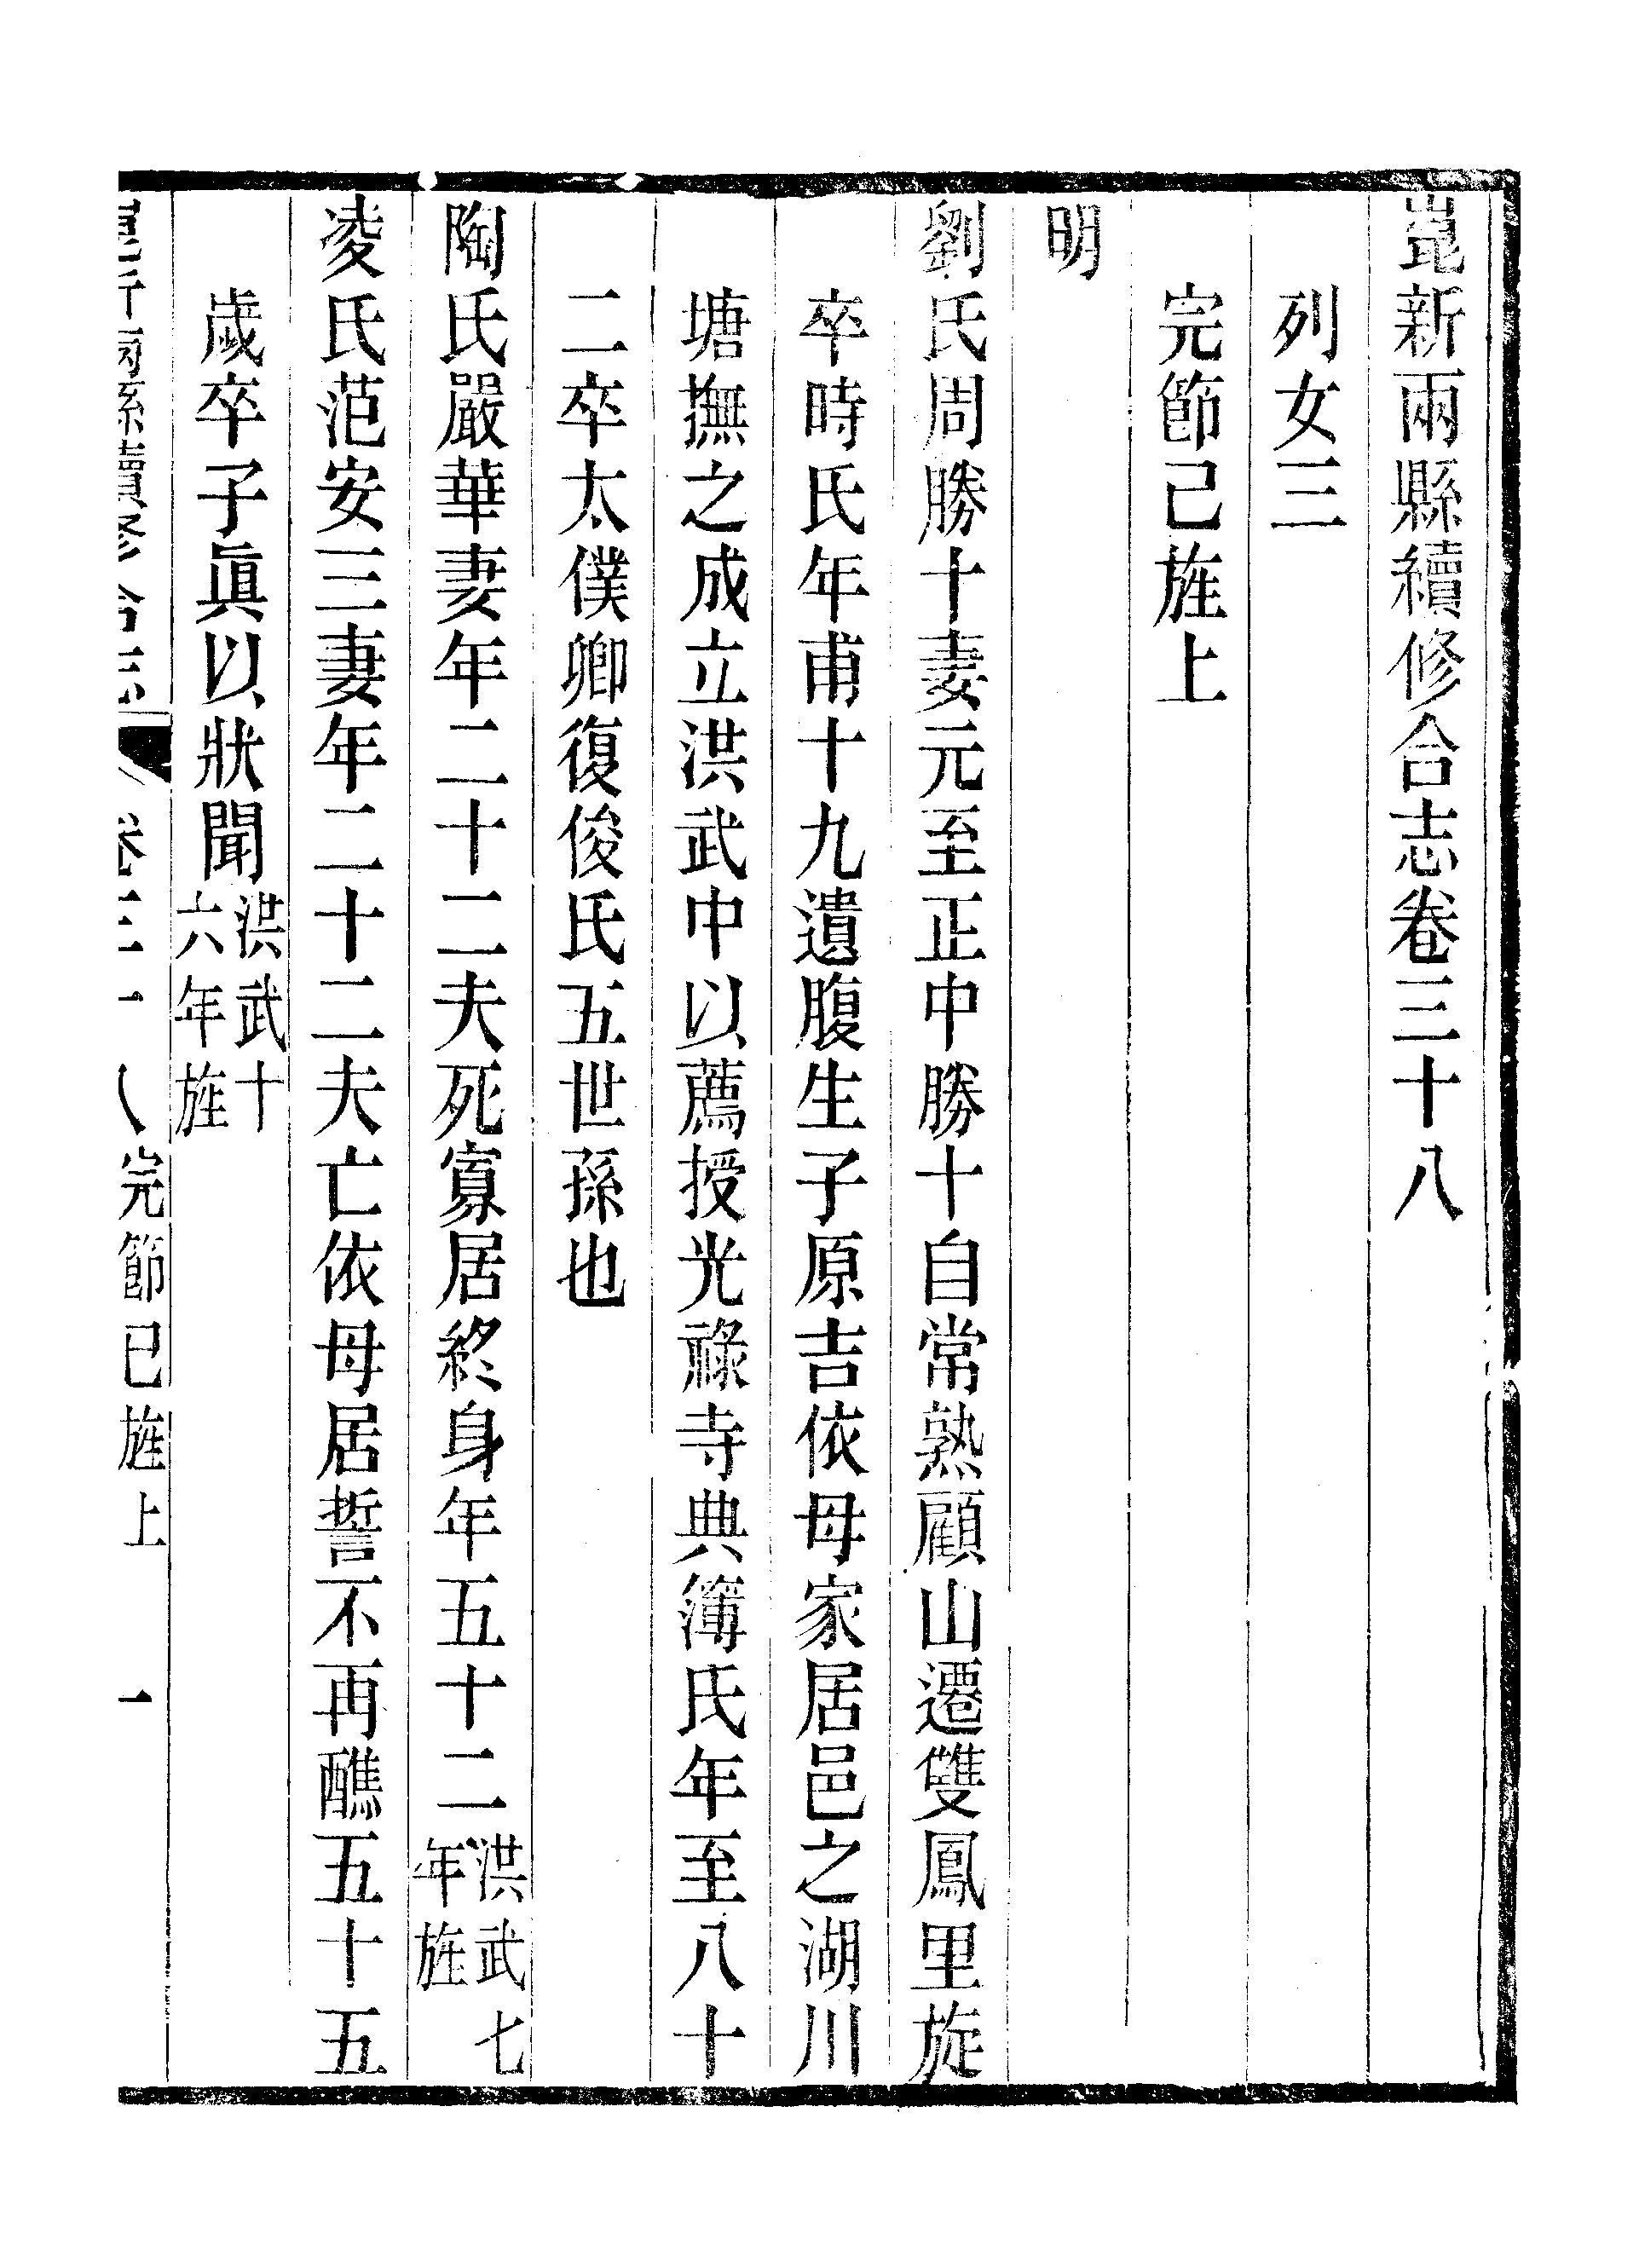 崑新兩縣續修合志卷三十八
列女三
完節已旌上
明
劉氏周勝十妻元至正中勝十自常熟顧山遷雙鳳里旋
卒時氏年甫十九遺腹生子原吉依母家居邑之湖川
塘撫之成立洪武中以薦授光祿寺典簿氏年至八十
二卒太僕卿復俊氏五世孫也
陶氏嚴華妻年二十二夫死寡居終身年五十二洪武七
年旌
凌氏范安三妻年二十二夫亡依母居誓不再醮五十五
歲卒子眞以狀聞洪武十
六年旌
崑新兩縣續修合志 卷三十八 完節已旌上 一